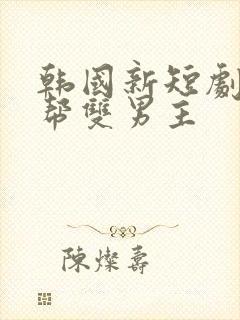 韩國新短劇
帮雙男主
陳燦壽